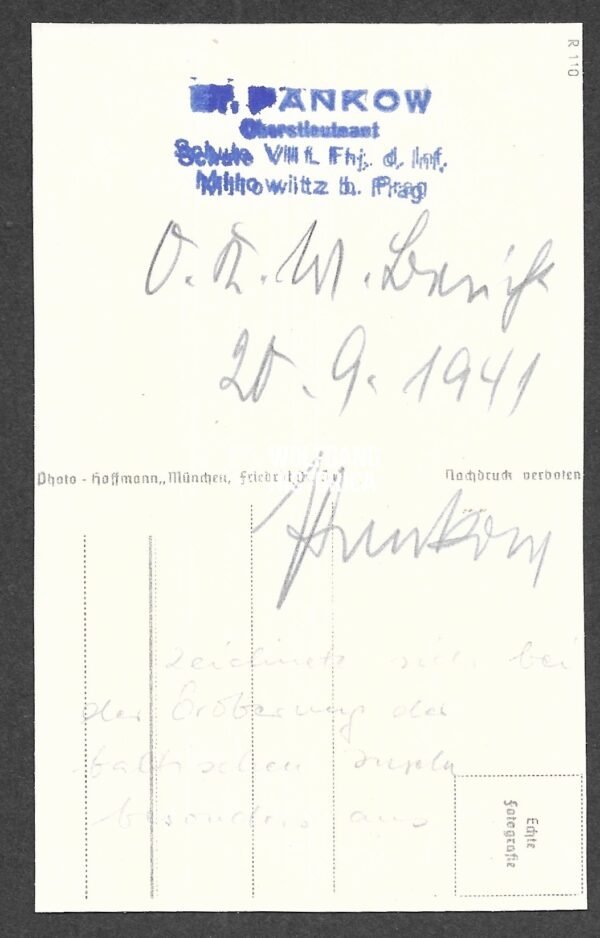 R 110
PANKOW
Oberstleutnant
Schule VIII f. Fhj. d. Inf.
Milowitz b. Prag
O.K.W. Bericht
20.9.1941
Photo - Hoffmann, München, Friedrichstr.
Nachdruck verboten
Pankow
zeichnete sich bei
der Eroberung der
baltischen Inseln
besonders aus
Echte
Fotografie